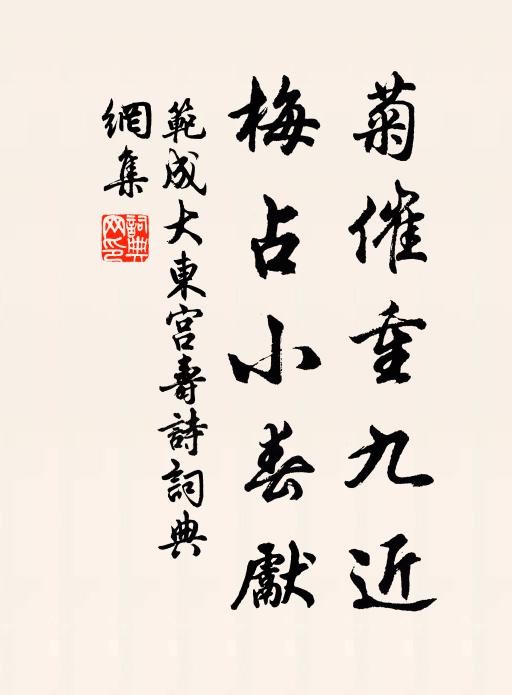 菊催重九近
梅占小春獻
範成大東宮壽詩詞典
網集
詞典網印